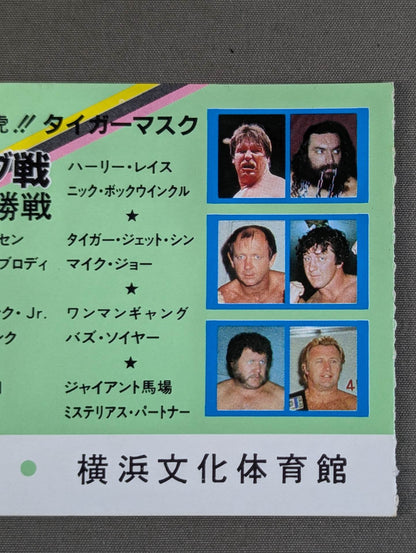 虎!! タイガーマスク
グ戦
勝戦
ハーリー・レイス
ニック・ボックウインクル
★
セン
ブロディ
タイガー・ジェット・シン
マイク・ジョー
★
ク・Jr.
ンク
ワンマンギャング
バズ・ソイヤー
★
ジャイアント馬場
ミステリアス・パートナー
4
● 横浜文化体育館